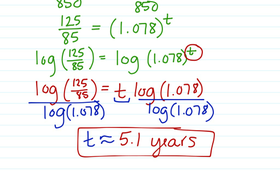 850 850
125/85 = (1.078)^t
log(125/85) = log (1.078)^t
log(125/85) = t log(1.078)
log(1.078) log(1.078)
t ≈ 5.1 years